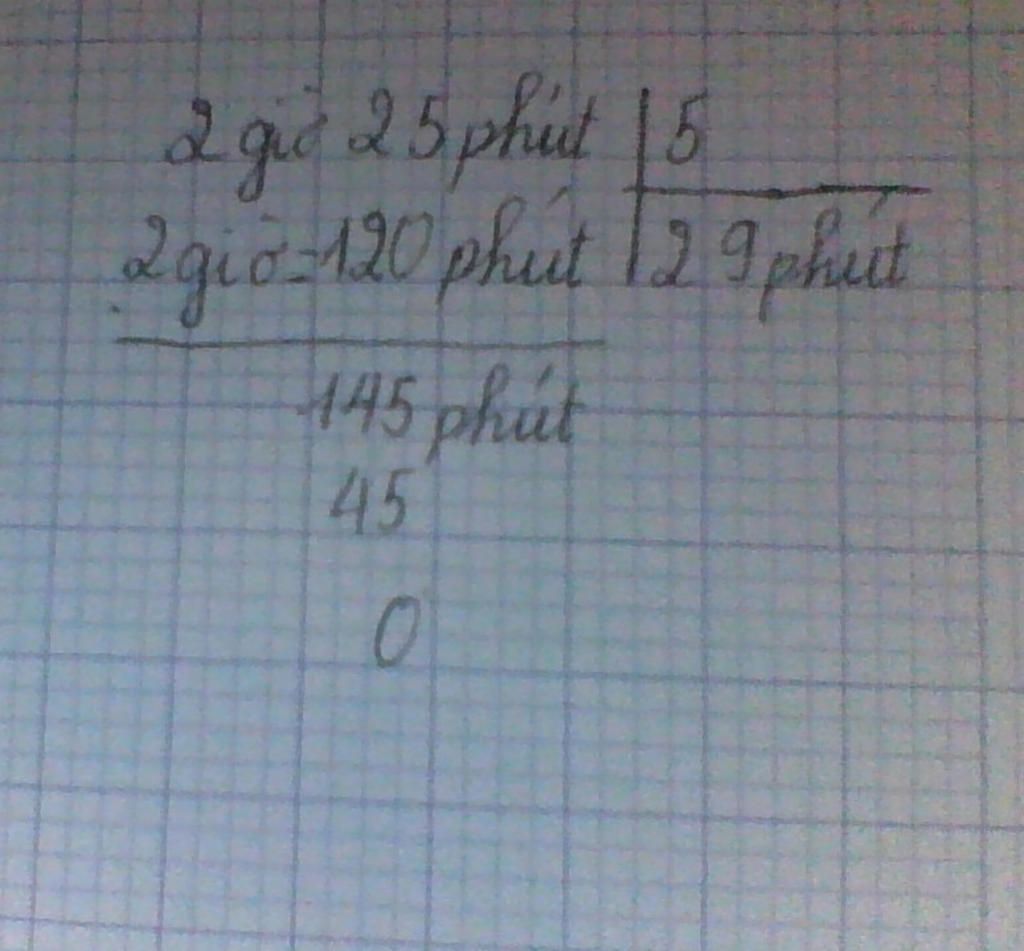 2 giờ 25 phút 5
2 giờ = 120 phút 29 phút
145 phút
45
0